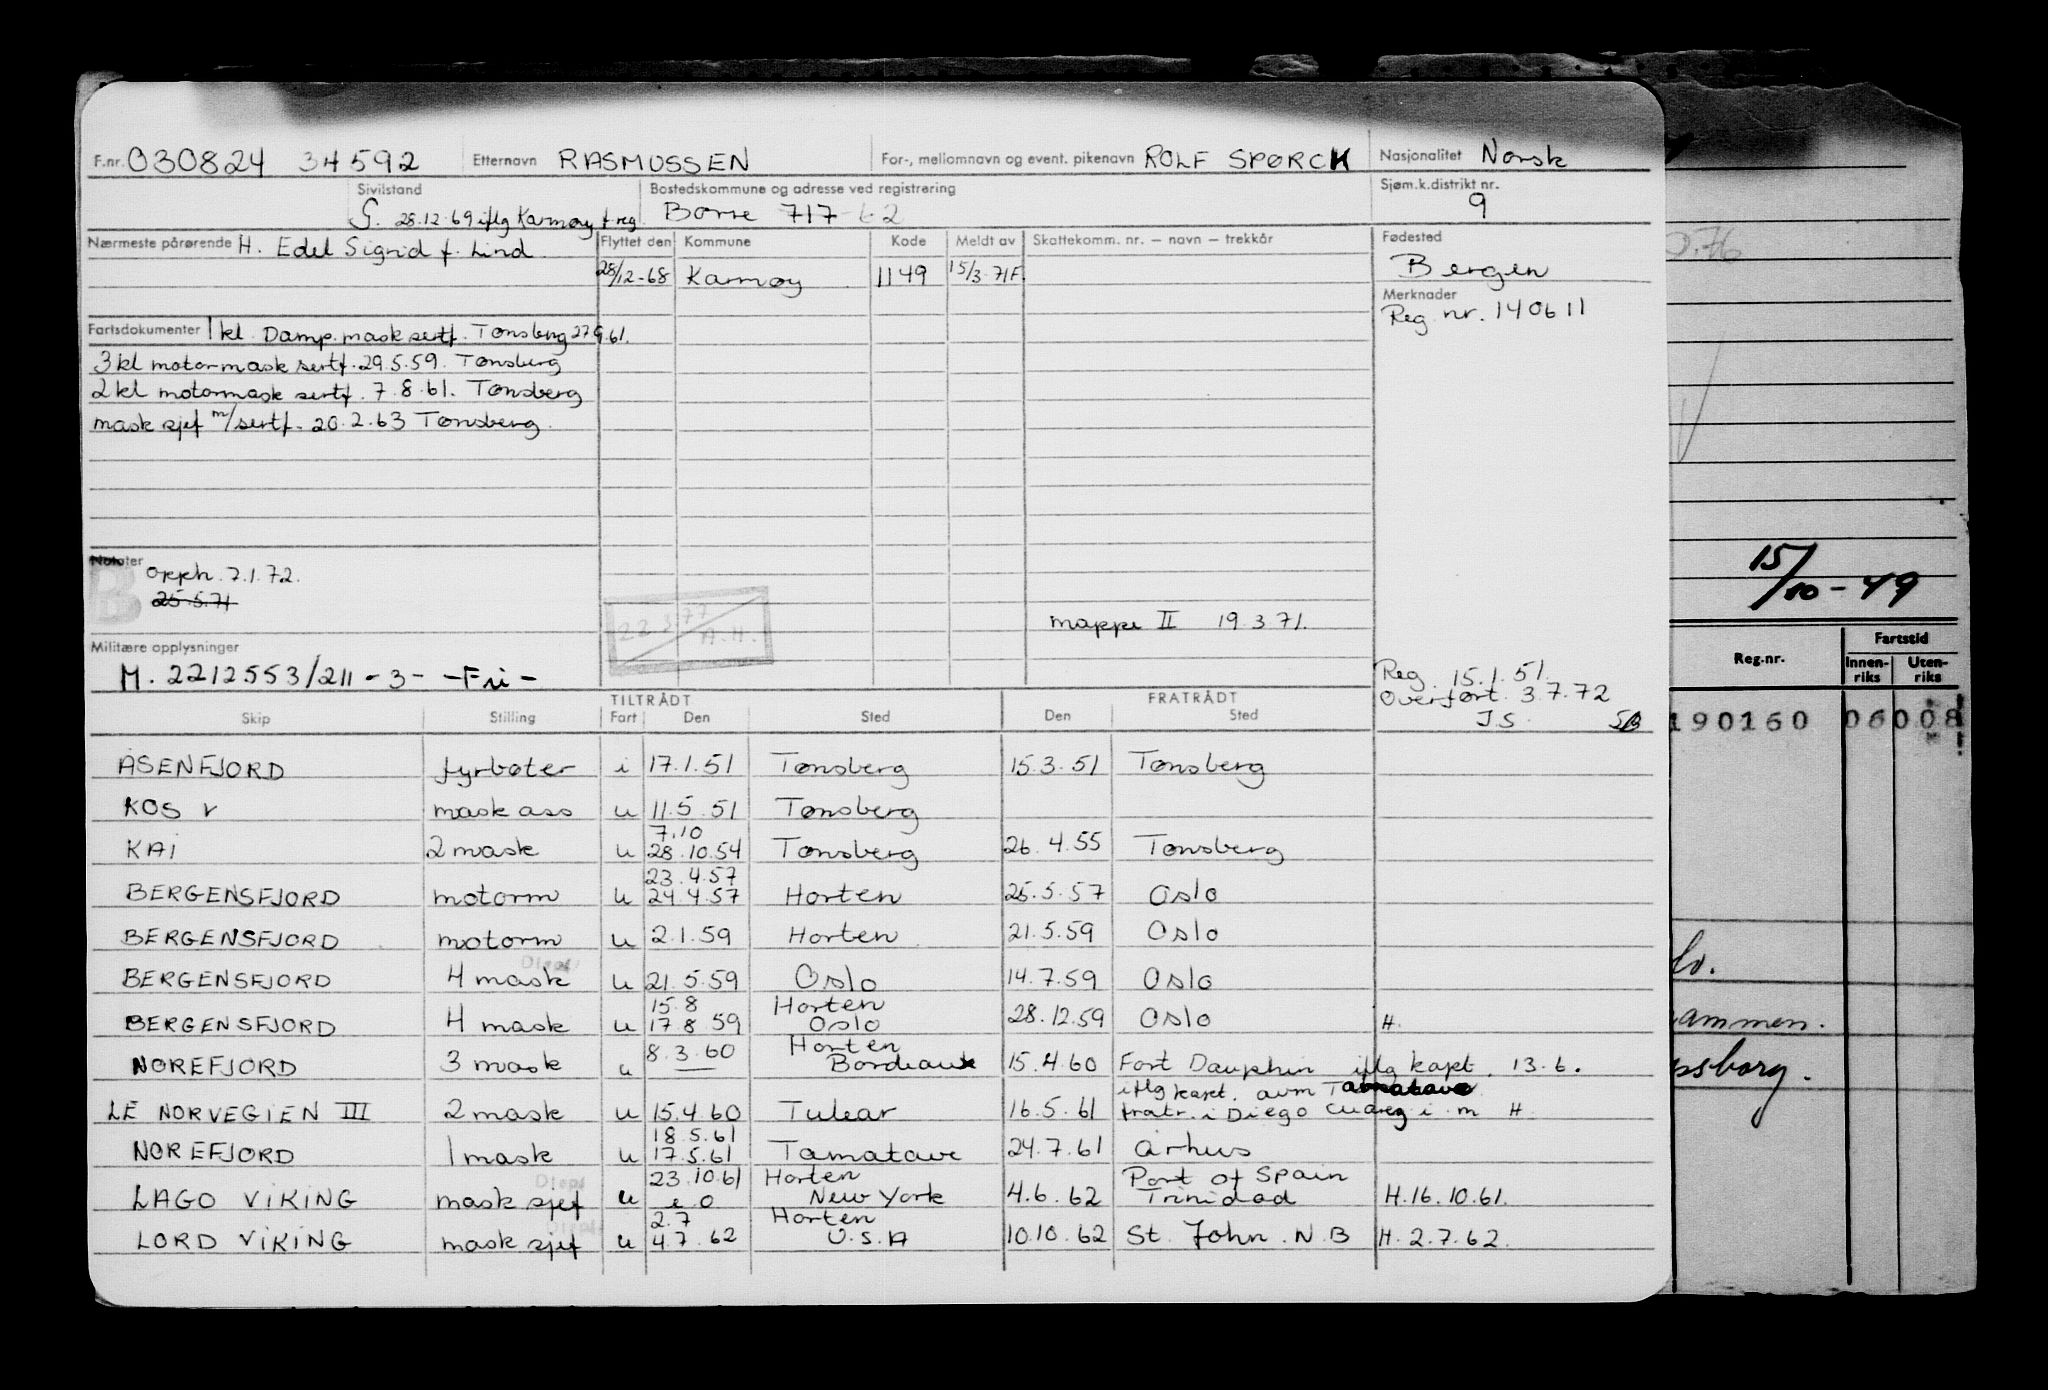 F.nr. 030824 34592 Etternavn RASMUSSEN For-, mellomnavn og event. pikenavn ROLF SPØRCK Nasjonalitet Norsk
Sivilstand Bostedskommune og adresse ved registrering Sjøm.k.distrikt nr.
G. 28.12.69 iflg Karmøy f.reg. Borre 717 9
Nærmeste pårørende H. Edel Sigrid f. Lind Flyttet den Kommune Kode Meldt av Skattekomm. nr. — navn — trekkår Fødested
28/12-68 Karmøy 1149 15/3.71F. Bergen
Merknader
Reg. nr. 140611
Fartsdokumenter 1 kl. Damp.mask sertf. Tønsberg 27.9.61.
3 kl motormask sertf. 29.5.59. Tønsberg
2 kl motormask sertf. 7.8.61. Tønsberg
mask sjef m/sertf. 20.2.63 Tønsberg.
Notater Opph. 7.1.72.
B
25.5.71
15/10-49
22 3 77
A.H.
mappe II 19 3 71.
Militære opplysninger
M. 2212553/211 - 3 - -Fri-
Reg 15.1.51.
Overført 3.7.72
J.S. SB
Reg.nr. Fartstid
Innen-riks Uten-riks
190160 06008
TILTRÅDT FRATRÅDT
Skip Stilling Fart Den Sted Den Sted
ÅSENFJORD fyrbøter i 17.1.51 Tønsberg 15.3.51 Tønsberg
KOS V mask ass u 11.5.51 Tønsberg
7.10
KAI 2 mask u 28.10.54 Tønsberg 26.4.55 Tønsberg
23.4.57
BERGENSFJORD motorm u 24.4.57 Horten 25.5.57 Oslo
BERGENSFJORD motorm u 2.1.59 Horten 21.5.59 Oslo
Disp
BERGENSFJORD 4 mask u 21.5.59 Oslo 14.7.59 Oslo
15.8 Horten
BERGENSFJORD 4 mask u 17.8 59 Oslo 28.12.59 Oslo H.
8.3.60 Horten
NOREFJORD 3 mask u Bordeaux 15.4.60 Fort Dauphin iflg kapt. 13.6.
iflg kapt. avm Tamatave
LE NORVEGIEN III 2 mask u 15.4.60 Tulear 16.5.61 fratr. i Diego Cuarez i.m H.
18.5.61
NOREFJORD 1 mask u 17.5.61 Tamatave 24.7.61 Århus
Disp 23.10.61 Horten Port of Spain
LAGO VIKING mask sjef u e.o New York 4.6.62 Trinidad H.16.10.61.
Disp 2.7 Horten
LORD VIKING mask sjef u 4.7.62 U.S.A 10.10.62 St. John. N.B H.2.7.62.